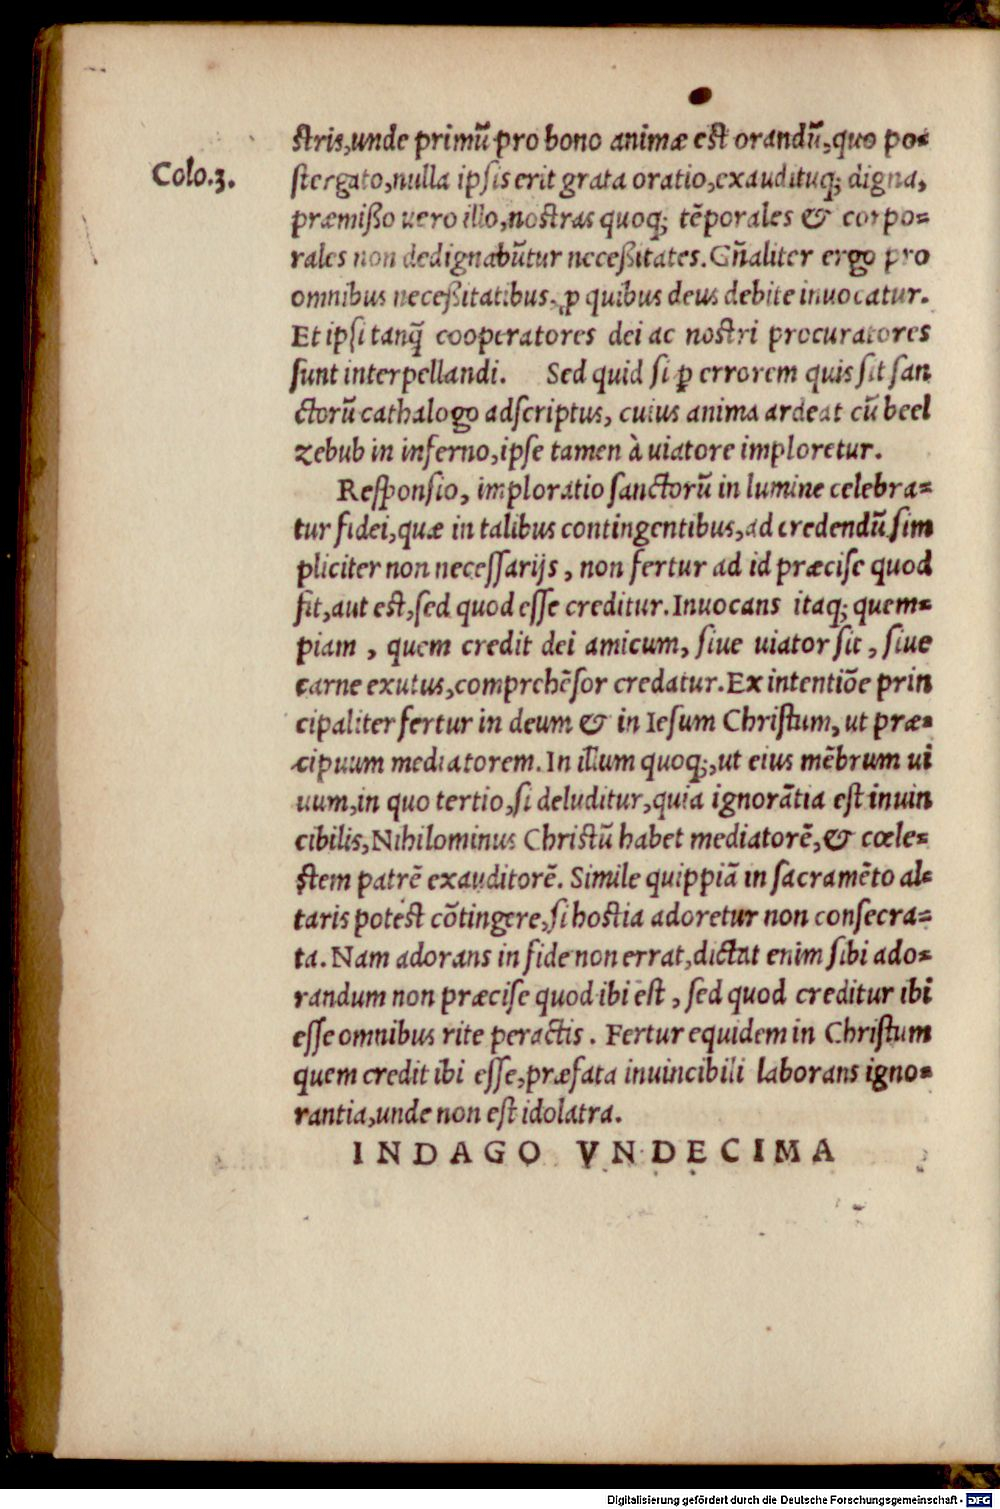 stris,unde primū pro bono animæ est orandū,quo po-
Colo.3.
stergato,nulla ipsis erit grata oratio,exaudituq; digna,
præmißo uero illo,nostras quoq; tēporales & corpo-
rales non dedignabūtur neceßitates.Gñaliter ergo pro
omnibus neceßitatibus, ꝑ quibus deus debite inuocatur.
Et ipsi tanq̃ cooperatores dei ac nostri procuratores
sunt interpellandi. Sed quid si ꝑ errorem quis sit san
ctorū cathalogo adscriptus, cuius anima ardeat cū beel
zebub in inferno,ipse tamen à uiatore imploretur.
Responsio, imploratio sanctorū in lumine celebra-
tur fidei,quæ in talibus contingentibus,ad credendū sim
pliciter non necessarijs, non fertur ad id præcise quod
fit,aut est,sed quod esse creditur.Inuocans itaq; quem-
piam, quem credit dei amicum, siue uiator sit, siue
carne exutus,comprehēsor credatur.Ex intentiōe prin
cipaliter fertur in deum & in Iesum Christum, ut præ-
cipuum mediatorem.In illum quoq;,ut eius mēbrum ui
uum,in quo tertio,si deluditur,quia ignorātia est inuin
cibilis,Nihilominus Christū habet mediatorē,& cœle-
stem patrē exauditorē. Simile quippiā in sacramēto al-
taris potest cōtingere,si hostia adoretur non consecra-
ta.Nam adorans in fide non errat,dictat enim sibi ado-
randum non præcise quod ibi est, sed quod creditur ibi
esse omnibus rite peractis. Fertur equidem in Christum
quem credit ibi esse,præfata inuincibili laborans igno-
rantia,unde non est idolatra.
INDAGO VNDECIMA
Digitalisierung gefördert durch die Deutsche Forschungsgemeinschaft - DFG